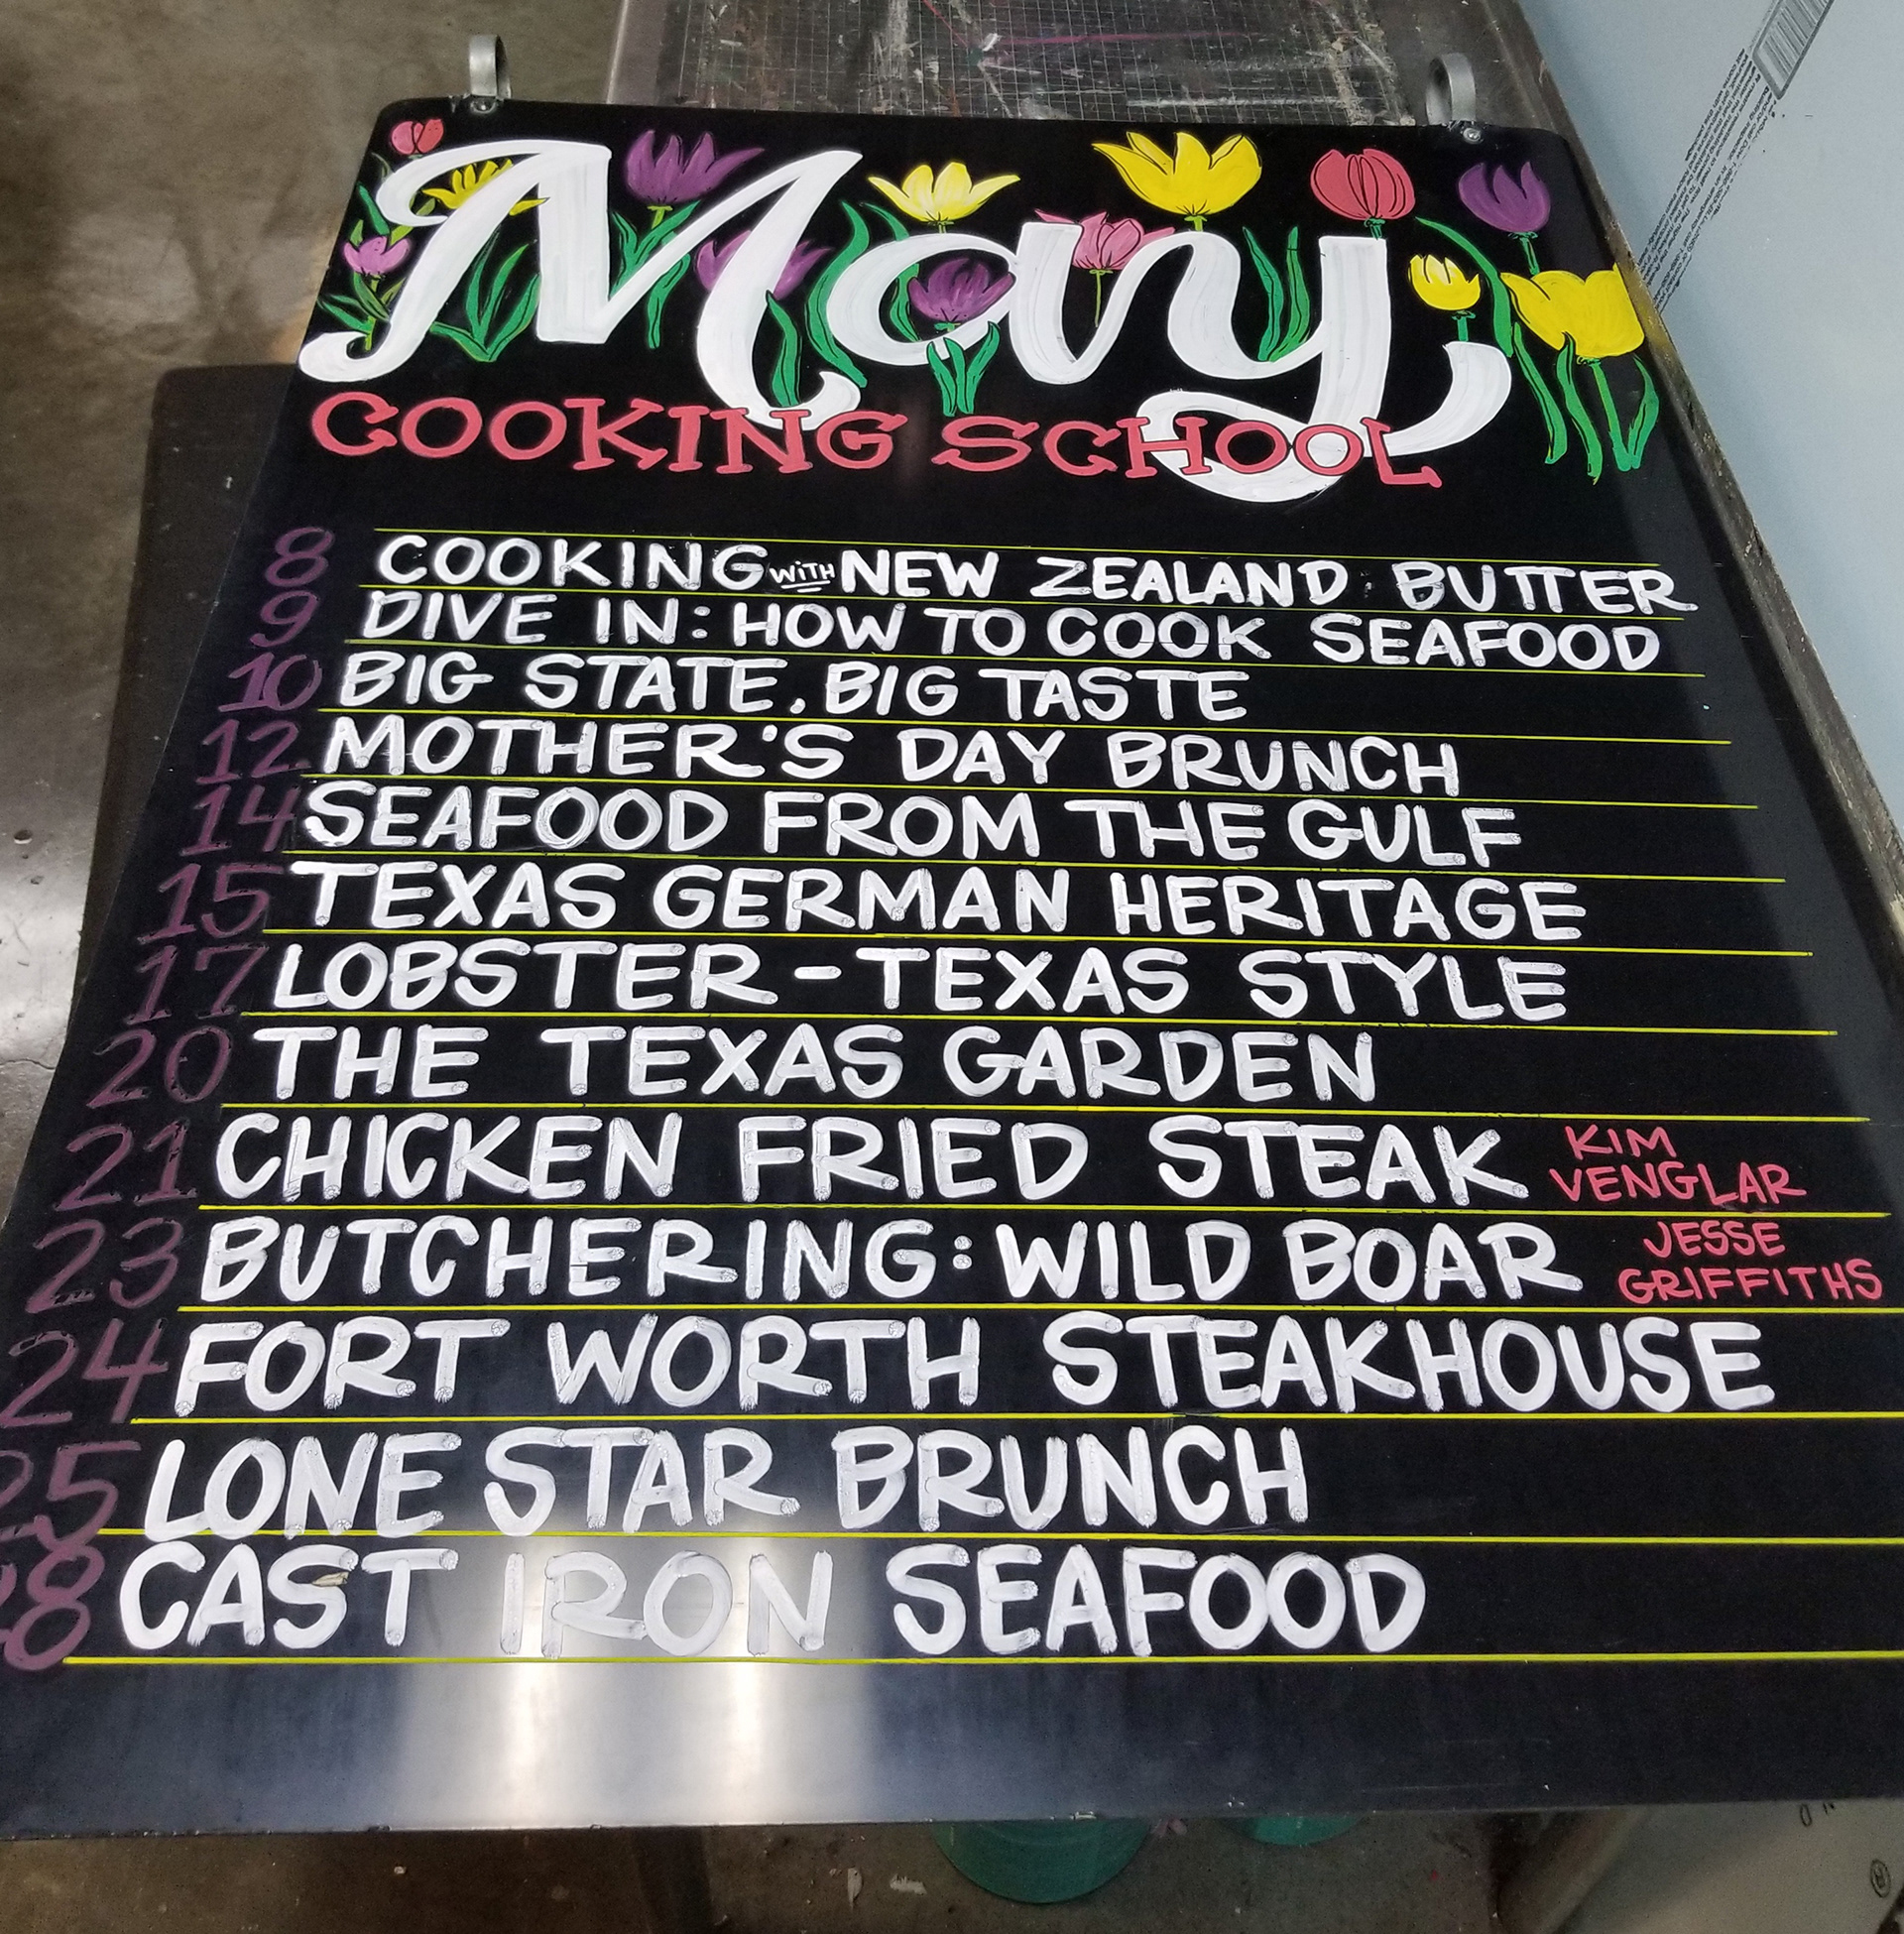 May
COOKING SCHOOL
8 COOKING WITH NEW ZEALAND BUTTER
9 DIVE IN: HOW TO COOK SEAFOOD
10 BIG STATE, BIG TASTE
12 MOTHER'S DAY BRUNCH
14 SEAFOOD FROM THE GULF
15 TEXAS GERMAN HERITAGE
17 LOBSTER - TEXAS STYLE
20 THE TEXAS GARDEN
21 CHICKEN FRIED STEAK KIM VENGLAR
23 BUTCHERING: WILD BOAR JESSE GRIFFITHS
24 FORT WORTH STEAKHOUSE
25 LONE STAR BRUNCH
28 CAST IRON SEAFOOD